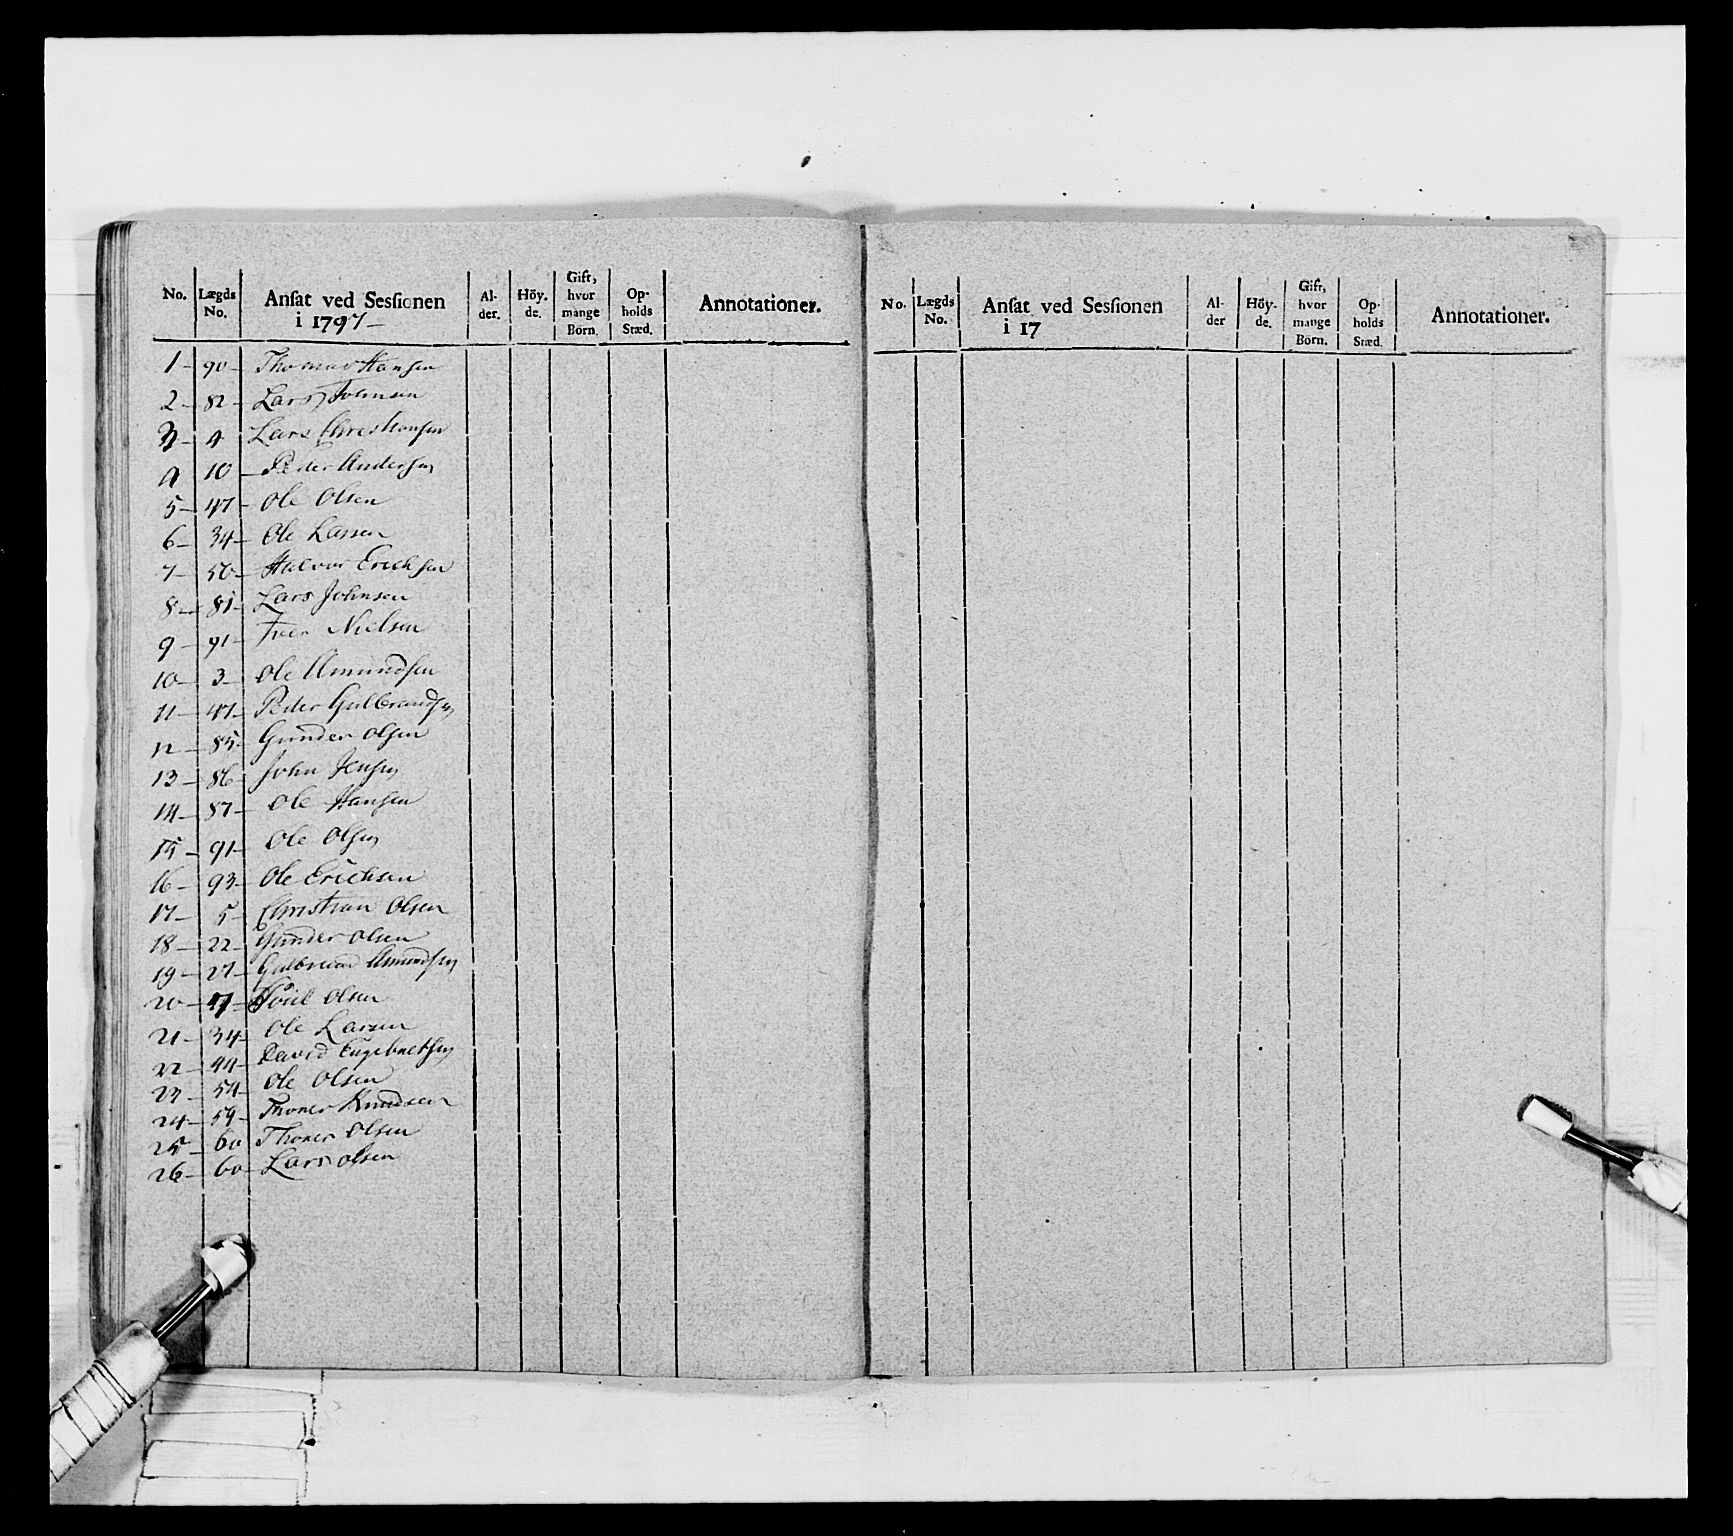 No. | Lægds No. | Ansat ved Sessionen i 1797 | Al-der. | Höy-de. | Gift, hvor mange Börn. | Op-holds Stæd. | Annotationer.
1 - 90 - Thomas Hansen
2 - 82 - Lars
3 - 4 Lars Christiansen
4 10 - Peder Andersen
5 - 47 - Ole Olsen
6 - 34 - Ole Larsen
7 - 50 - Halvor Erichsen
8 - 81 - Lars Johnsen
9 - 91 - Iver Nielsen
10 - 3 - Ole Amundsen
11 - 47 - Peder Gulbrandsen
12 - 85 - Gunder Olsen
13 - 86 - John Jensen
14 - 87 - Ole Hansen
15 - 91 - Ole Olsen
16 - 93 - Ole Erichsen
17 - 5 - Christian Olsen
18 - 22 - Gunder Olsen
19 - 27 - Gulbrand Amundsen
20 - Olsen
21 - 34 - Ole Larsen
22 - 44 - David Engebretsen
23 - 54 - Ole Olsen
24 - 59 - Thoner Knudsen
25 60 Thoner Olsen
26 - 60 - Lars Olsen
No. | Lægds No. | Ansat ved Sessionen i 17 | Al-der | Höy-de. | Gift, hvor mange Börn. | Op-holds Stæd. | Annotationer.